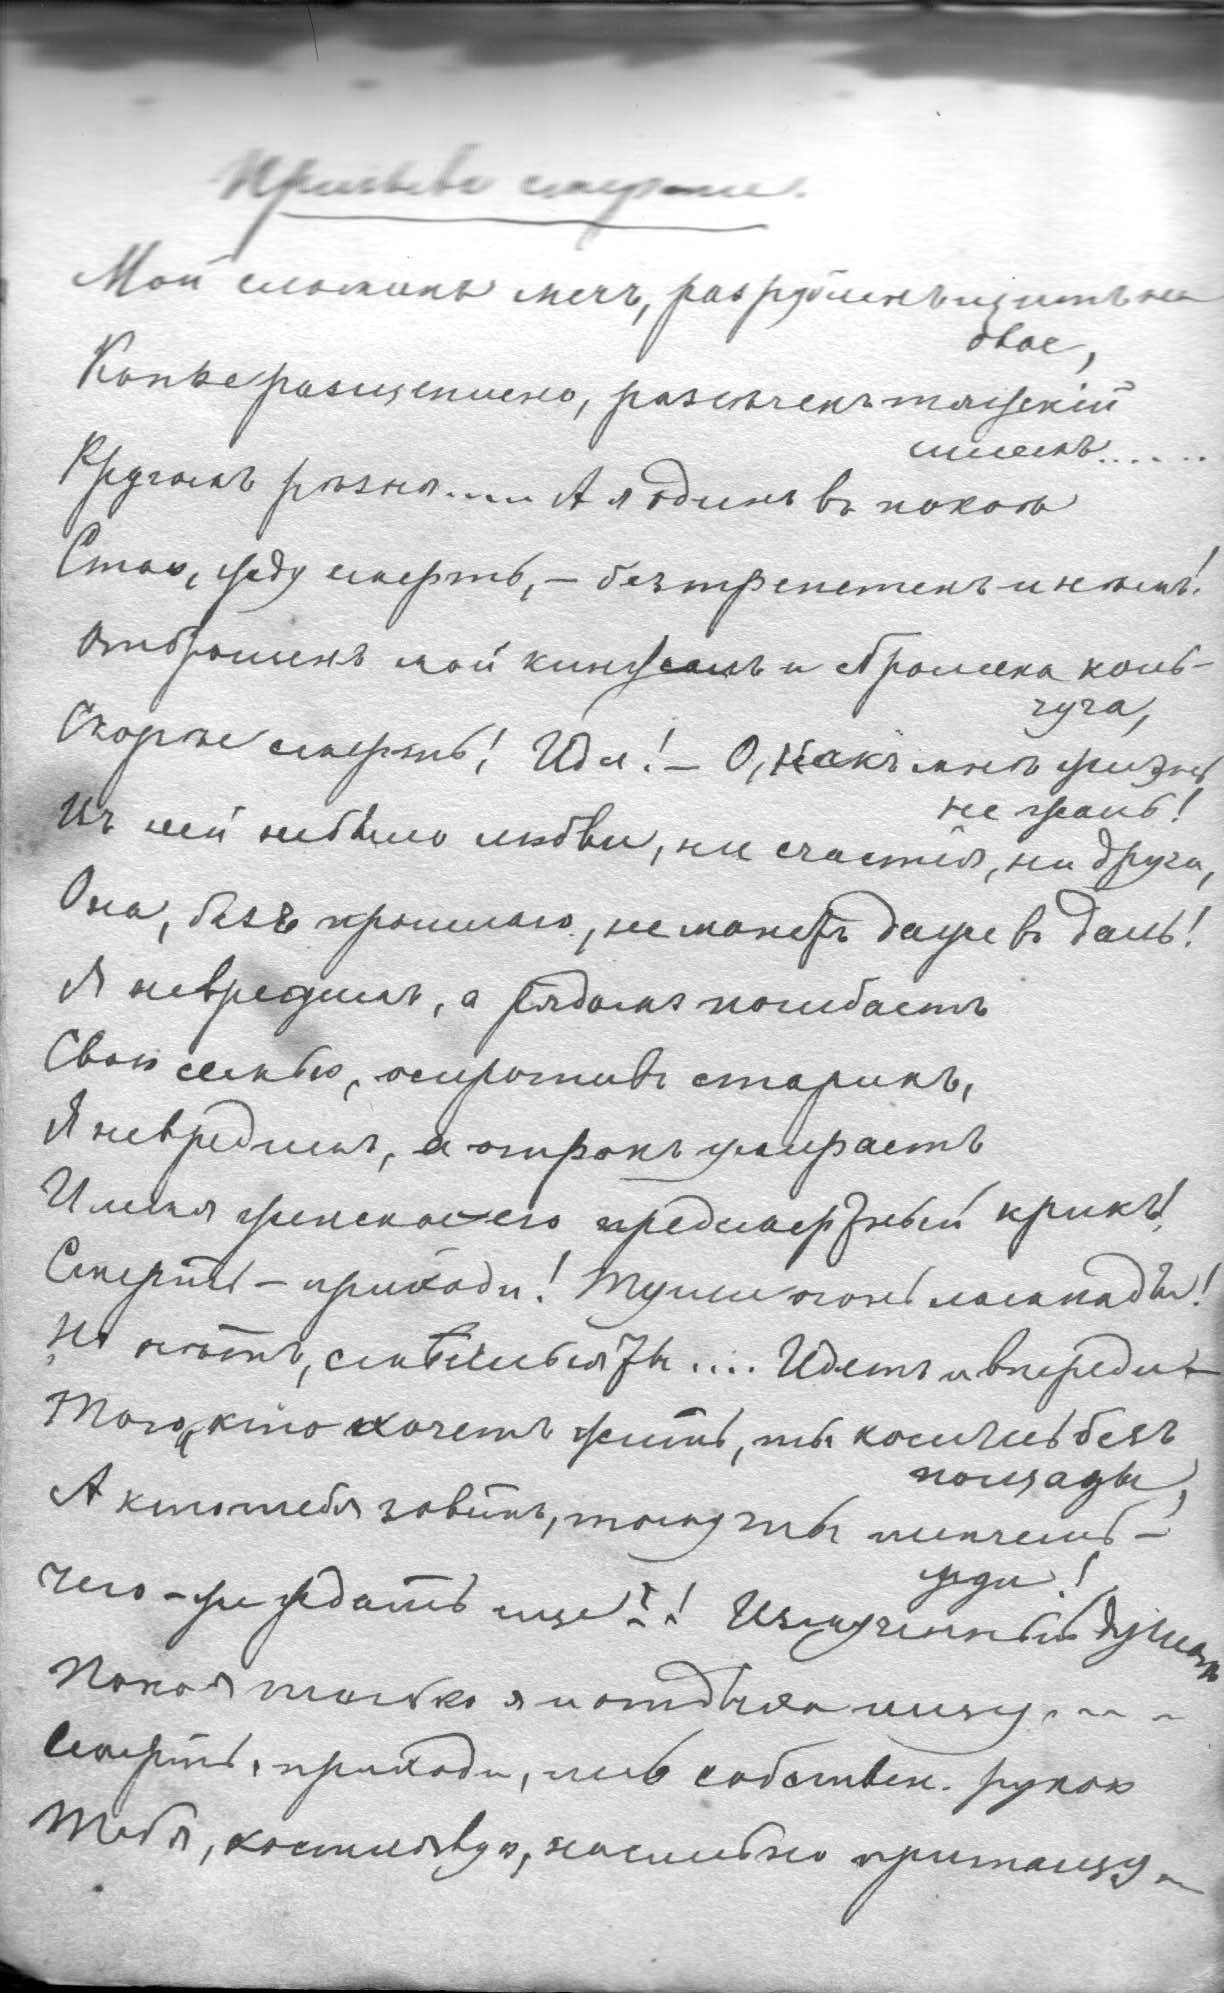 Призывъ смерти.
Мой сломанъ мечъ, разрубленъ щитъ на
двое,
Копье расщеплено, разсѣченъ тяжскій
шлемъ......
Кругомъ рѣзня.... А я одинъ въ покоѣ
Стою, жду смерть, – безтрепетенъ и нѣмъ!
Отброшенъ мой кинжалъ и сброшена коль-
чуга,
Скорѣе смерть! Иди! – О, какъ мнѣ жизнь
не жаль!
Въ ней небыло любви, ни счастія, ни друга,
Она, безъ прошлаго, не манетъ даже въ даль!
Я невредимъ, а рядомъ погибаетъ
Свою семью, осиротивъ старикъ,
Я невредимъ, а отрокъ умираетъ
И мая женскаго его предсмертный крикъ!
Смерть – приходи! Туши огонь лампады!
Но нѣтъ, смѣешься ты .... Идешь и впереди
Того, кто хочетъ жить, ты косишь безъ
пощады,
А кто тебя зоветъ, тому ты шепчешь –
жди!
Чего-же ждать еще?! Измученный душою
Покоя только я и отдыха ищу . – –
Смерть, приходи, иль собствен. рукою
Тебя, костлявую, насильно притащу –